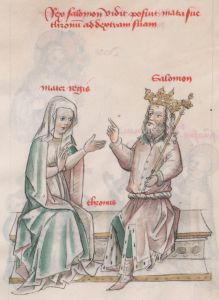 Rex salomon vidit posuit matri sue
thronu ad dextram suam
Salomon
mater regis
thronus